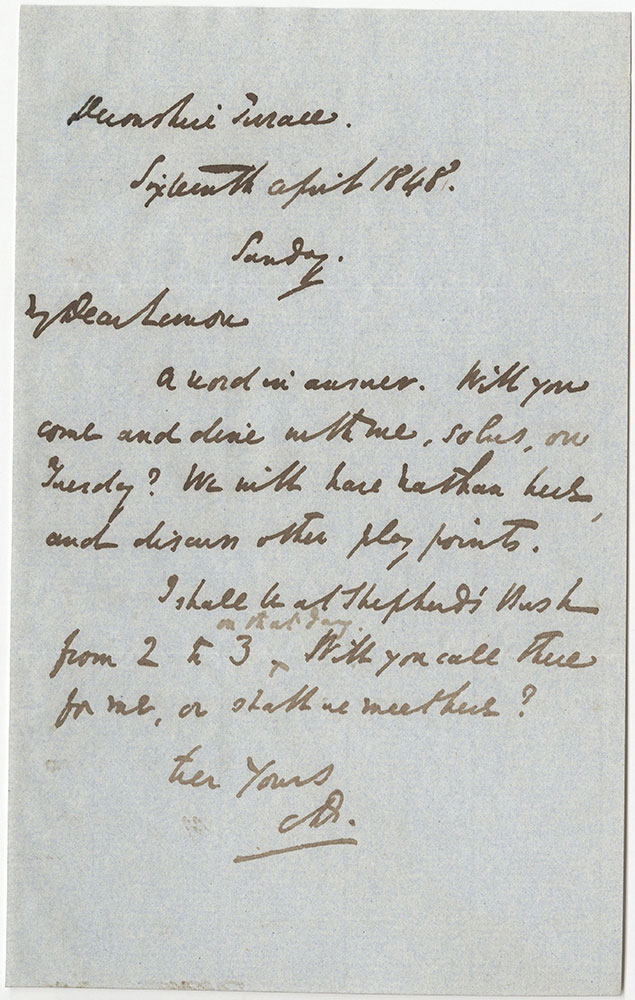 Devonshire Terrace.
Sixteenth April 1848.
Sunday.
My Dear Lemon
A word in answer. Will you
come and dine with me, solus, on
Tuesday? We will have Nathan here,
and discuss other play points.
I shall be at Shepherd's Bush
on that day.
from 2 to 3 ^ Will you call there
for me, or shall we meet here?
Ever Yours
CD.